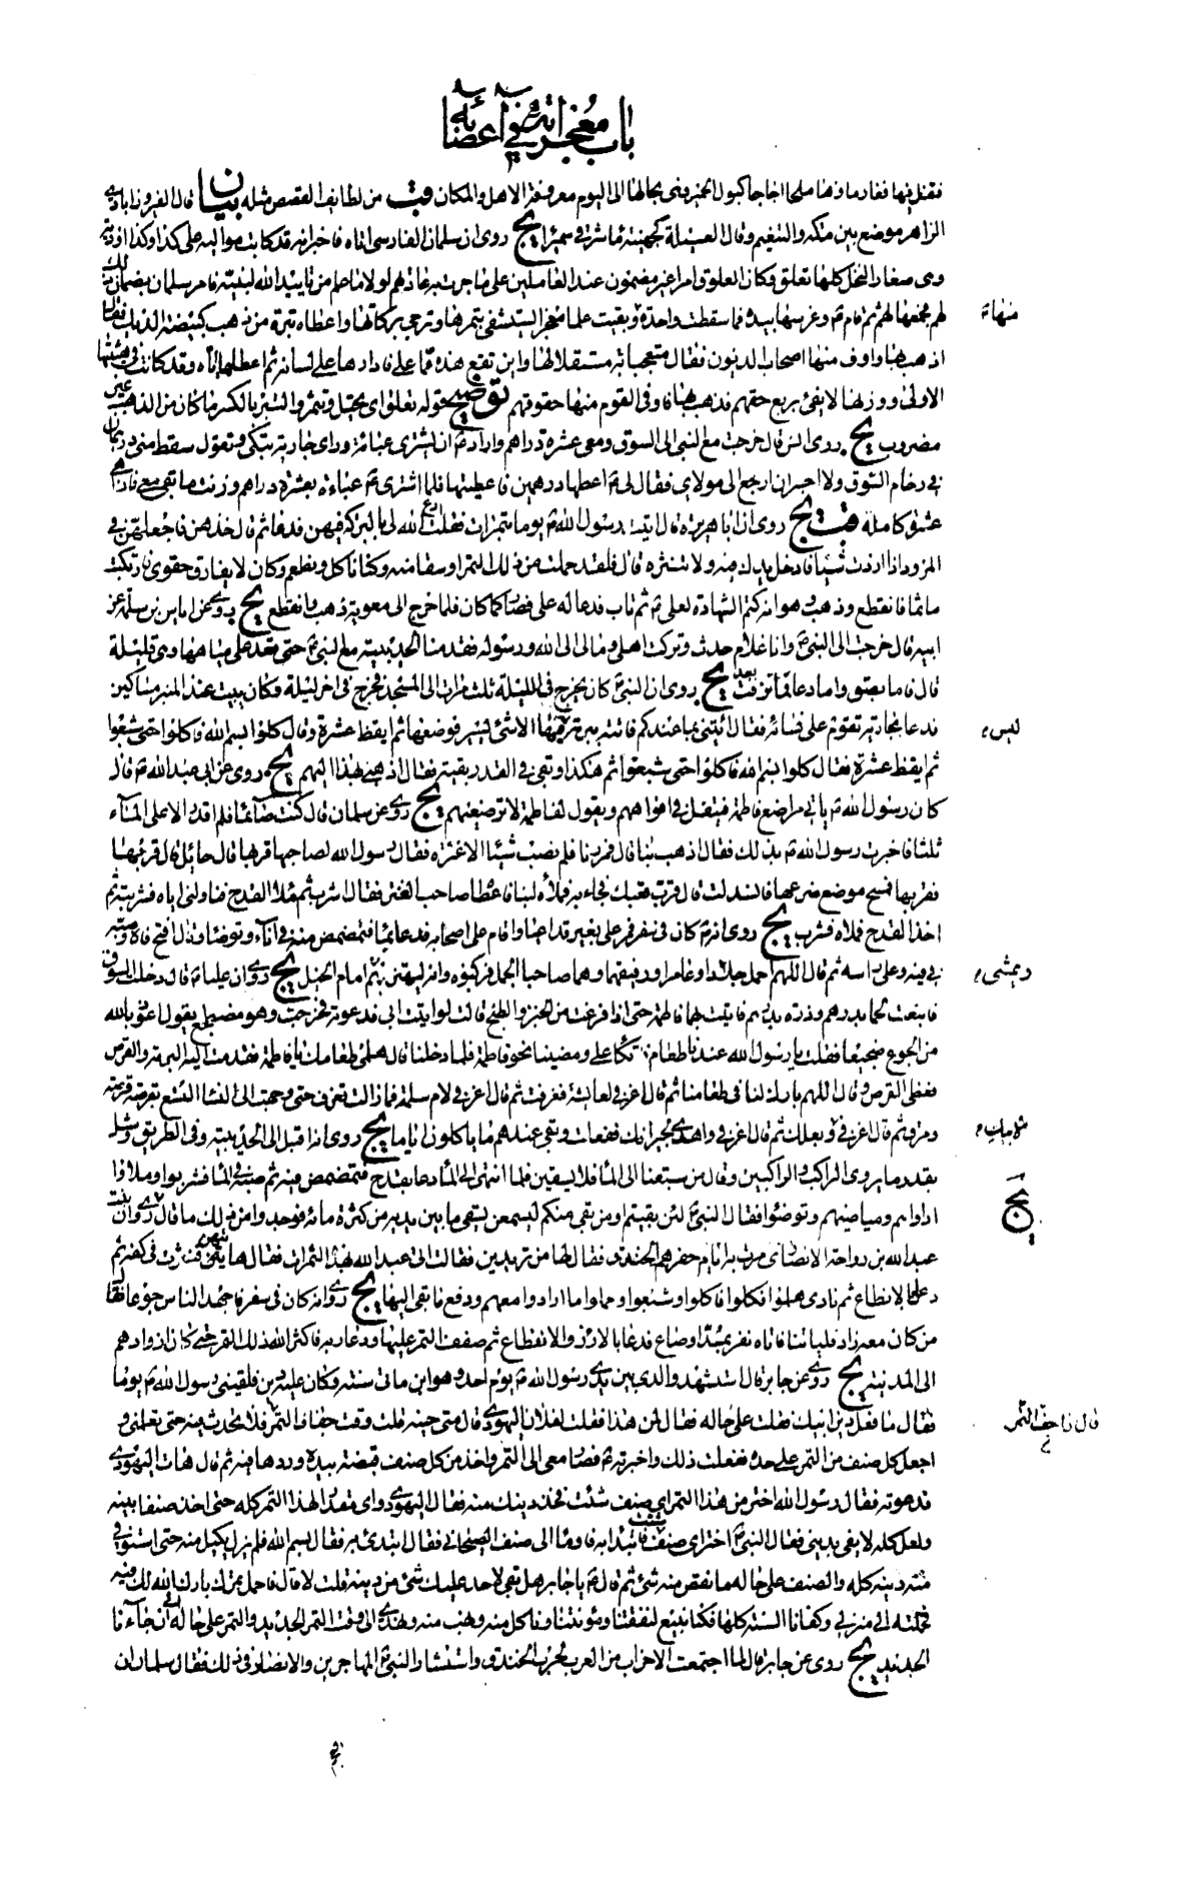 باب معجزاته في أعضائه
فتفل فيها فغار ماؤها ملحا اجاجا كبول الحمير وهى بحالها الى اليوم معروفة الاهل والمكان قب من لطايف القصص مثله بيان قال الفيروزابادى
الزاهر موضع بين مكة والتنعيم وقال العسيلة كجهينة ماء شرقي سميراء يج روى ان سلمان الفارسى اتاه فاخبره انه قد كاتب مواليه على كذا وكذا ودية
وهى صغار النخل كلها تعلق وكان العلوق امرا غير مضمون عند العاملين على ما جرت به عادتهم لولا ما علم من تاييد الله لنبيه فامر سلمان بضمان ذلك
لهم فجمعها لهم ثم قام ص وغرسها بيده فما سقطت واحدة وبقيت علما معجزا يستشفى بتمرها وترجى بركاتها واعطاه تبرة من ذهب كبيضة الديك فقال
اذهب بها واوف منها اصحاب الديون فقال متعجبا به مستقلا لها واين تقع هذه مما على فادارها على لسانه ثم اعطاها اياه وقد كانت في هيئتها
الاولى ووزنها لا يفى بربع حقهم فذهب بها فاوفى القوم منها حقوقهم توضيح قوله تعلق اى يحتبل ويتمر والتبر بالكسر ما كان من الذهب غير
مضروب يج روى انس قال خرجت مع النبى الى السوق ومعى عشرة دراهم واراد ص ان يشترى عباءة وراى جارية تبكى وتقول سقط منى درهمان
في زحام السوق ولا اجسر ان ارجع الى مولاى فقال لى ص اعطها درهمين فاعطيتها فلما اشترى ص عباءة بعشرة دراهم وزنت ما بقى معى فاذا هى
عشرة كاملة قب يج روى ان ابا هريرة قال اتيت رسول الله ص يوما بتمرات فقلت ادع الله لى بالبركة فيهن فدعا ثم قال خذهن فاجعلهن في
المزود اذا اردت شيئا فادخل يدك فيه ولا تنثره قال فلقد حملت من ذلك التمر اوسقا منه وكنا ناكل ونطعم وكان لا يفارق حقوى فارتكبت
ماثما فانقطع وذهب وهو انه كتم الشهادة لعلى ع ثم تاب فدعا له على فصار كما كان فلما خرج الى معوية ذهب وانقطع يج روى عن اياس بن سلمة عن
ابيه قال خرجت الى النبى ص وانا غلام حدث وتركت اهلى ومالى الى الله ورسوله فقدمنا الحديبية مع النبى ص حتى قعد على مياهها وهى قليلة
قال فاما بصق واما دعا فما نزفت بعد يج روى ان النبى ص كان يخرج في الليلة ثلث مرات الى المسجد فخرج في اخر ليلة وكان يبيت عند المنبر مساكين
فدعا بجارية تقوم على نسائه فقال ائتينى بما عندكم فاتته ببرمة فيها الا شئ يسير فوضعها ثم ايقظ عشرة وقال كلوا بسم الله فاكلوا حتى شبعوا
ثم ايقظ عشرة فقال كلوا بسم الله فاكلوا حتى شبعوا ثم هكذا وبقى في القدر بقية فقال اذهبى بهذا اليهم يج روى عن ابى عبد الله ع قال
كان رسول الله ص ياتى مراضع فاطمة فيتفل في افواههم ويقول لفاطمة لا ترضعيهم يج روى عن سلمان قال كنت صائما فلم اقدر الا على الماء
ثلثا فاخبرت رسول الله ص بذلك فقال اذهب بنا قال فمررنا فلم نصب شيئا الا عنزة فقال رسول الله لصاحبها قربها قال حائل قال قربها
فقربها فمسح موضع ضرعها فانسدلت قال قرب قعبك فجاء به فملأه لبنا فاعطا صاحب العنز فقال اشرب ثم ملأ القدح فناولنى اياه فشربته ثم
اخذ القدح فملاه فشرب يج روى انه ص كان في سفر فمر على بعير قد اعيا واقام على اصحابه فدعا بماء فتمضمض منه في اناء وتوضأ وقال افتح فاه وصب
في فيه وعلى راسه ثم قال اللهم احمل خلادا وعامرا ورفيقهما وهما صاحبا الجمل فركبوه وانه ليهتز بهم امام الخيل يج روى ان عليا ع قال دخلت السوق
فابتعت لحما بدرهم وذرة بدرهم فاتيت بهما فاطمة حتى اذا فرغت من الخبز والطبخ قالت لو اتيت ابى فدعوته فخرجت وهو مضطجع يقول اعوذ بالله
من الجوع ضجيعا فقلت يا رسول الله عندنا طعام فاتكأ على ومضينا نحو فاطمة فلما دخلنا قال هلمى طعامك يا فاطمة فقدمت اليه البرمة والقرص
فغطى القرص وقال اللهم بارك لنا في طعامنا ثم قال اغرفى لعائشة فغرفت ثم قال اغرفى لام سلمة فما زالت تغرف حتى وجهت الى النساء التسع بقرصة قرصة
ومرق ثم قال اغرفى وبعلك ثم قال اغرفى واهدى لجيرانك ففعلت وبقى عندهم ما ياكلون اياما يج روى انه اقبل الى الحديبية وفى الطريق وشل
بقدر ما يروى الراكب والراكبين وقال من سبقنا الى الماء فلا يسقين فلما انتهى الى الماء دعا بقدح فتمضمض فيه ثم صبه في الماء فشربوا وملاوا
اداواتهم ومياضيهم وتوضئوا فقال النبى ص لئن بقيتم او من بقى منكم ليسمعن بسقى ما بين يديه من كثرة مائه فوجدوا من ذلك ما قال روى ان بنت
عبد الله بن رواحة الانصارى مرت به ايام حفرهم الخندق فقال لها من تريدين فقالت اتى عبد الله بهذه التمرات فقال هاتيهن فنثرت في كفه ثم
دعا بالانطاع ثم نادى هلموا فكلوا فاكلوا وشبعوا وحملوا ما ارادوا معهم ودفع ما بقى اليها يج روى انه كان في سفر فاجهد الناس جوعا فقال
من كان معه زاد فلياتنا فاتاه نفر بمقدار صاع فدعا بالازر والانطاع ثم صفف التمر عليها ودعا ربه فاكثر الله ذلك التمر حتى كان ازوادهم
الى المدينة يج روى عن جابر قال استشهد والدى بين يدى رسول الله ص يوم احد وهو ابن مائى سنة وكان عليه دين فلقينى رسول الله ص يوما
فقال ما فعل دين ابيك فقلت على حاله فقال لمن هذا فقلت لفلان اليهودى قال متى حينه قلت وقت جفاف التمر فلا تحدث فيه حتى تعلمنى و
اجعل كل صنف من التمر على حدة ففعلت ذلك واخبرته ص فصار معى الى التمر واخذ من كل صنف قبضة بيده وردها فيه ثم قال هات اليهودى
فدعوته فقال رسول الله اختر من هذا التمر اى صنف شئت فخذ دينك منه فقال اليهودى واى مقدار لهذا التمر كله حتى اخذ صنفا منه
ولعل كله لا يفى بدينى فقال النبى ص اختر اى صنف شئت فابتدئ به فاومأ الى صنف الصيحانى فقال ابتدئ به فقال بسم الله فلم يزل يكيل منه حتى استوفى
منه دينه كله والصنف على حاله ما نقص منه شئ ثم قال ص يا جابر هل بقى لاحد عليك شئ من دينه قلت لا قال فاحمل تمرك بارك الله لك فيه
فحملته الى منزلى وكفانا السنة كلها فكنا نبيع لنفقتنا ومؤنتنا وناكل منه ونهب منه ونهدى الى وقت التمر الجديد والتمر على حاله الى ان جاءنا
الجديد يج روى عن جابر قال لما اجتمعت الاحزاب من العرب لحرب الخندق واستشار النبى ص المهاجرين والانصار في ذلك فقال سلمان ان
منها
ليس
ومشى
ثم لابيك
يج
قال فاذا جف التمر